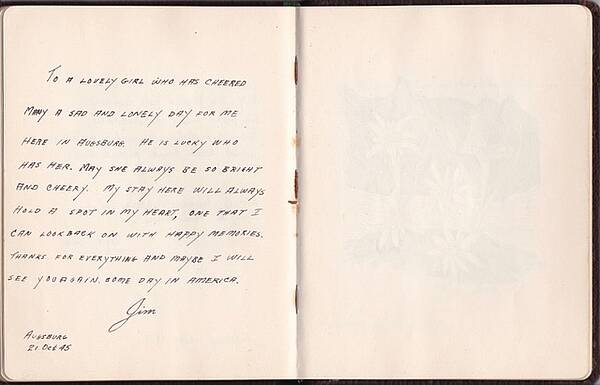 To a lovely girl who has cheered
many a sad and lonely day for me
here in Augsburg. He is lucky who
has her. May she always be so bright
and cheery. My stay here will always
hold a spot in my heart, one that I
can look back on with happy memories.
Thanks for everything and maybe I will
see you again some day in America.
Jim
Augsburg
21. Oct 45